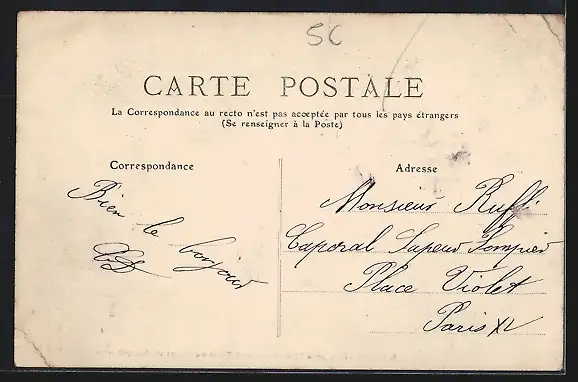 5C
CARTE POSTALE
La Correspondance au recto n'est pas acceptée par tous les pays étrangers
(Se renseigner à la Poste)
Correspondance
Adresse
Bien le bonjour
Monsieur Ruffi
Caporal Sapeur Pompier
Place Violet
Paris XV